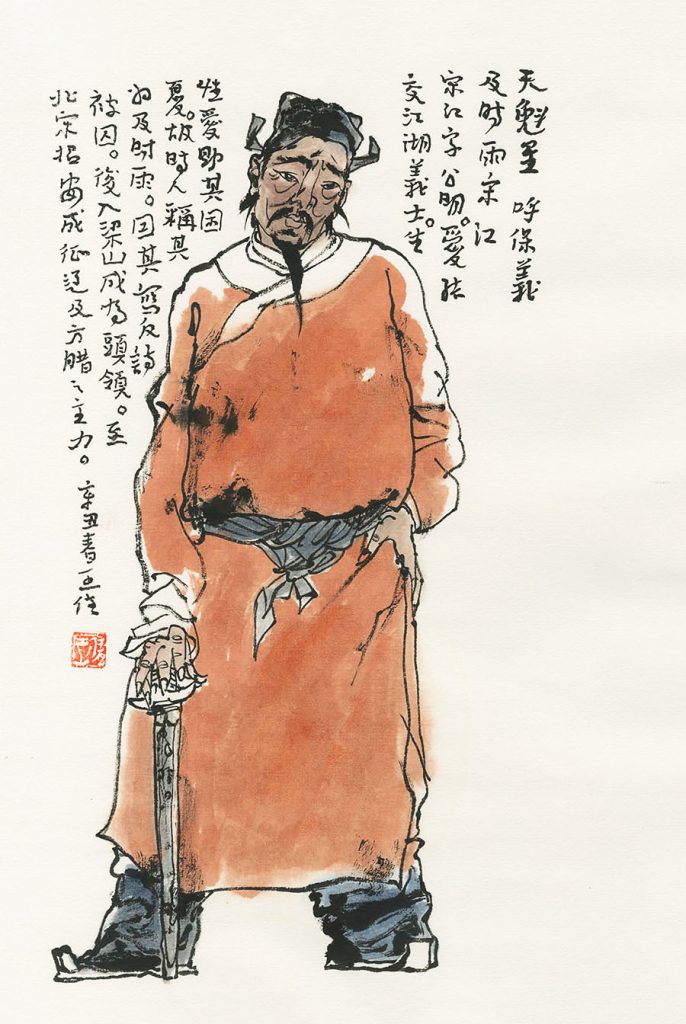 天魁星 呼保義
及時雨宋江
宋江字公明。愛結
交江湖義士。生
性愛助其困
故時人稱其
為及時雨。因其寫反詩
被囚。後入梁山成為頭領。至
北宋招安成征辽及方腊之主力。辛丑春